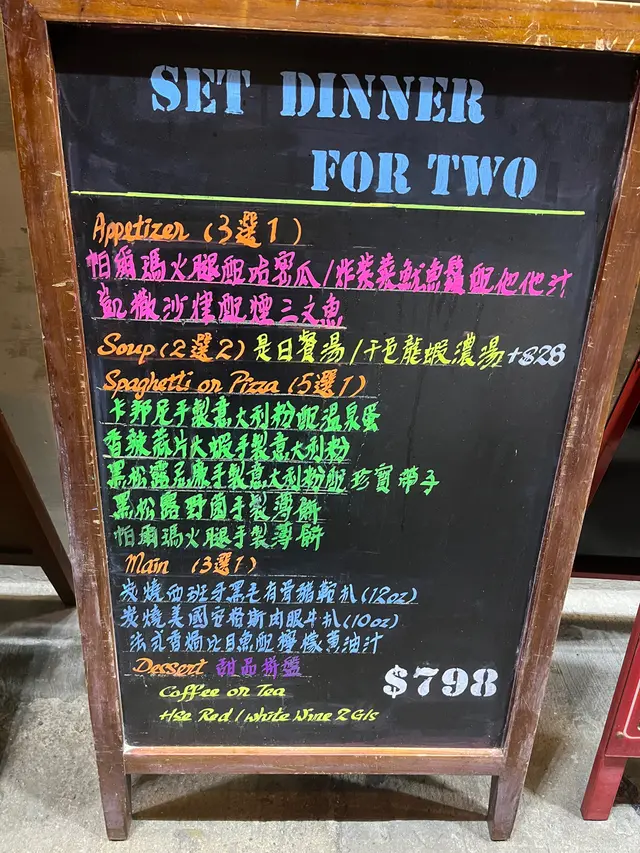 SET DINNER
FOR TWO
Appetizer (3選1)
帕爾瑪火腿配咕密瓜/炸英萊魷魚鬚配他他汁
凱撒沙律配煙三文魚
Soup (2選2) 是日餐湯/干邑龍蝦濃湯+$28
Spaghetti or Pizza (5選1)
卡邦尼手製意大利粉配溫泉蛋
香辣蒜片火蝦手製意大利粉
黑松露忌廉手製意大利粉配珍寶帶子
黑松露野菌手製薄餅
帕爾瑪火腿手製薄餅
Main (3選1)
炭燒西班牙黑毛有骨豬鞍扒(12oz)
炭燒美國安格斯肉眼牛扒(10oz)
法式香焗比目魚配檸檬蔥油汁
Dessert 甜品拼盤
$798
Coffee or Tea
Hse Red/White Wine 2 Gls